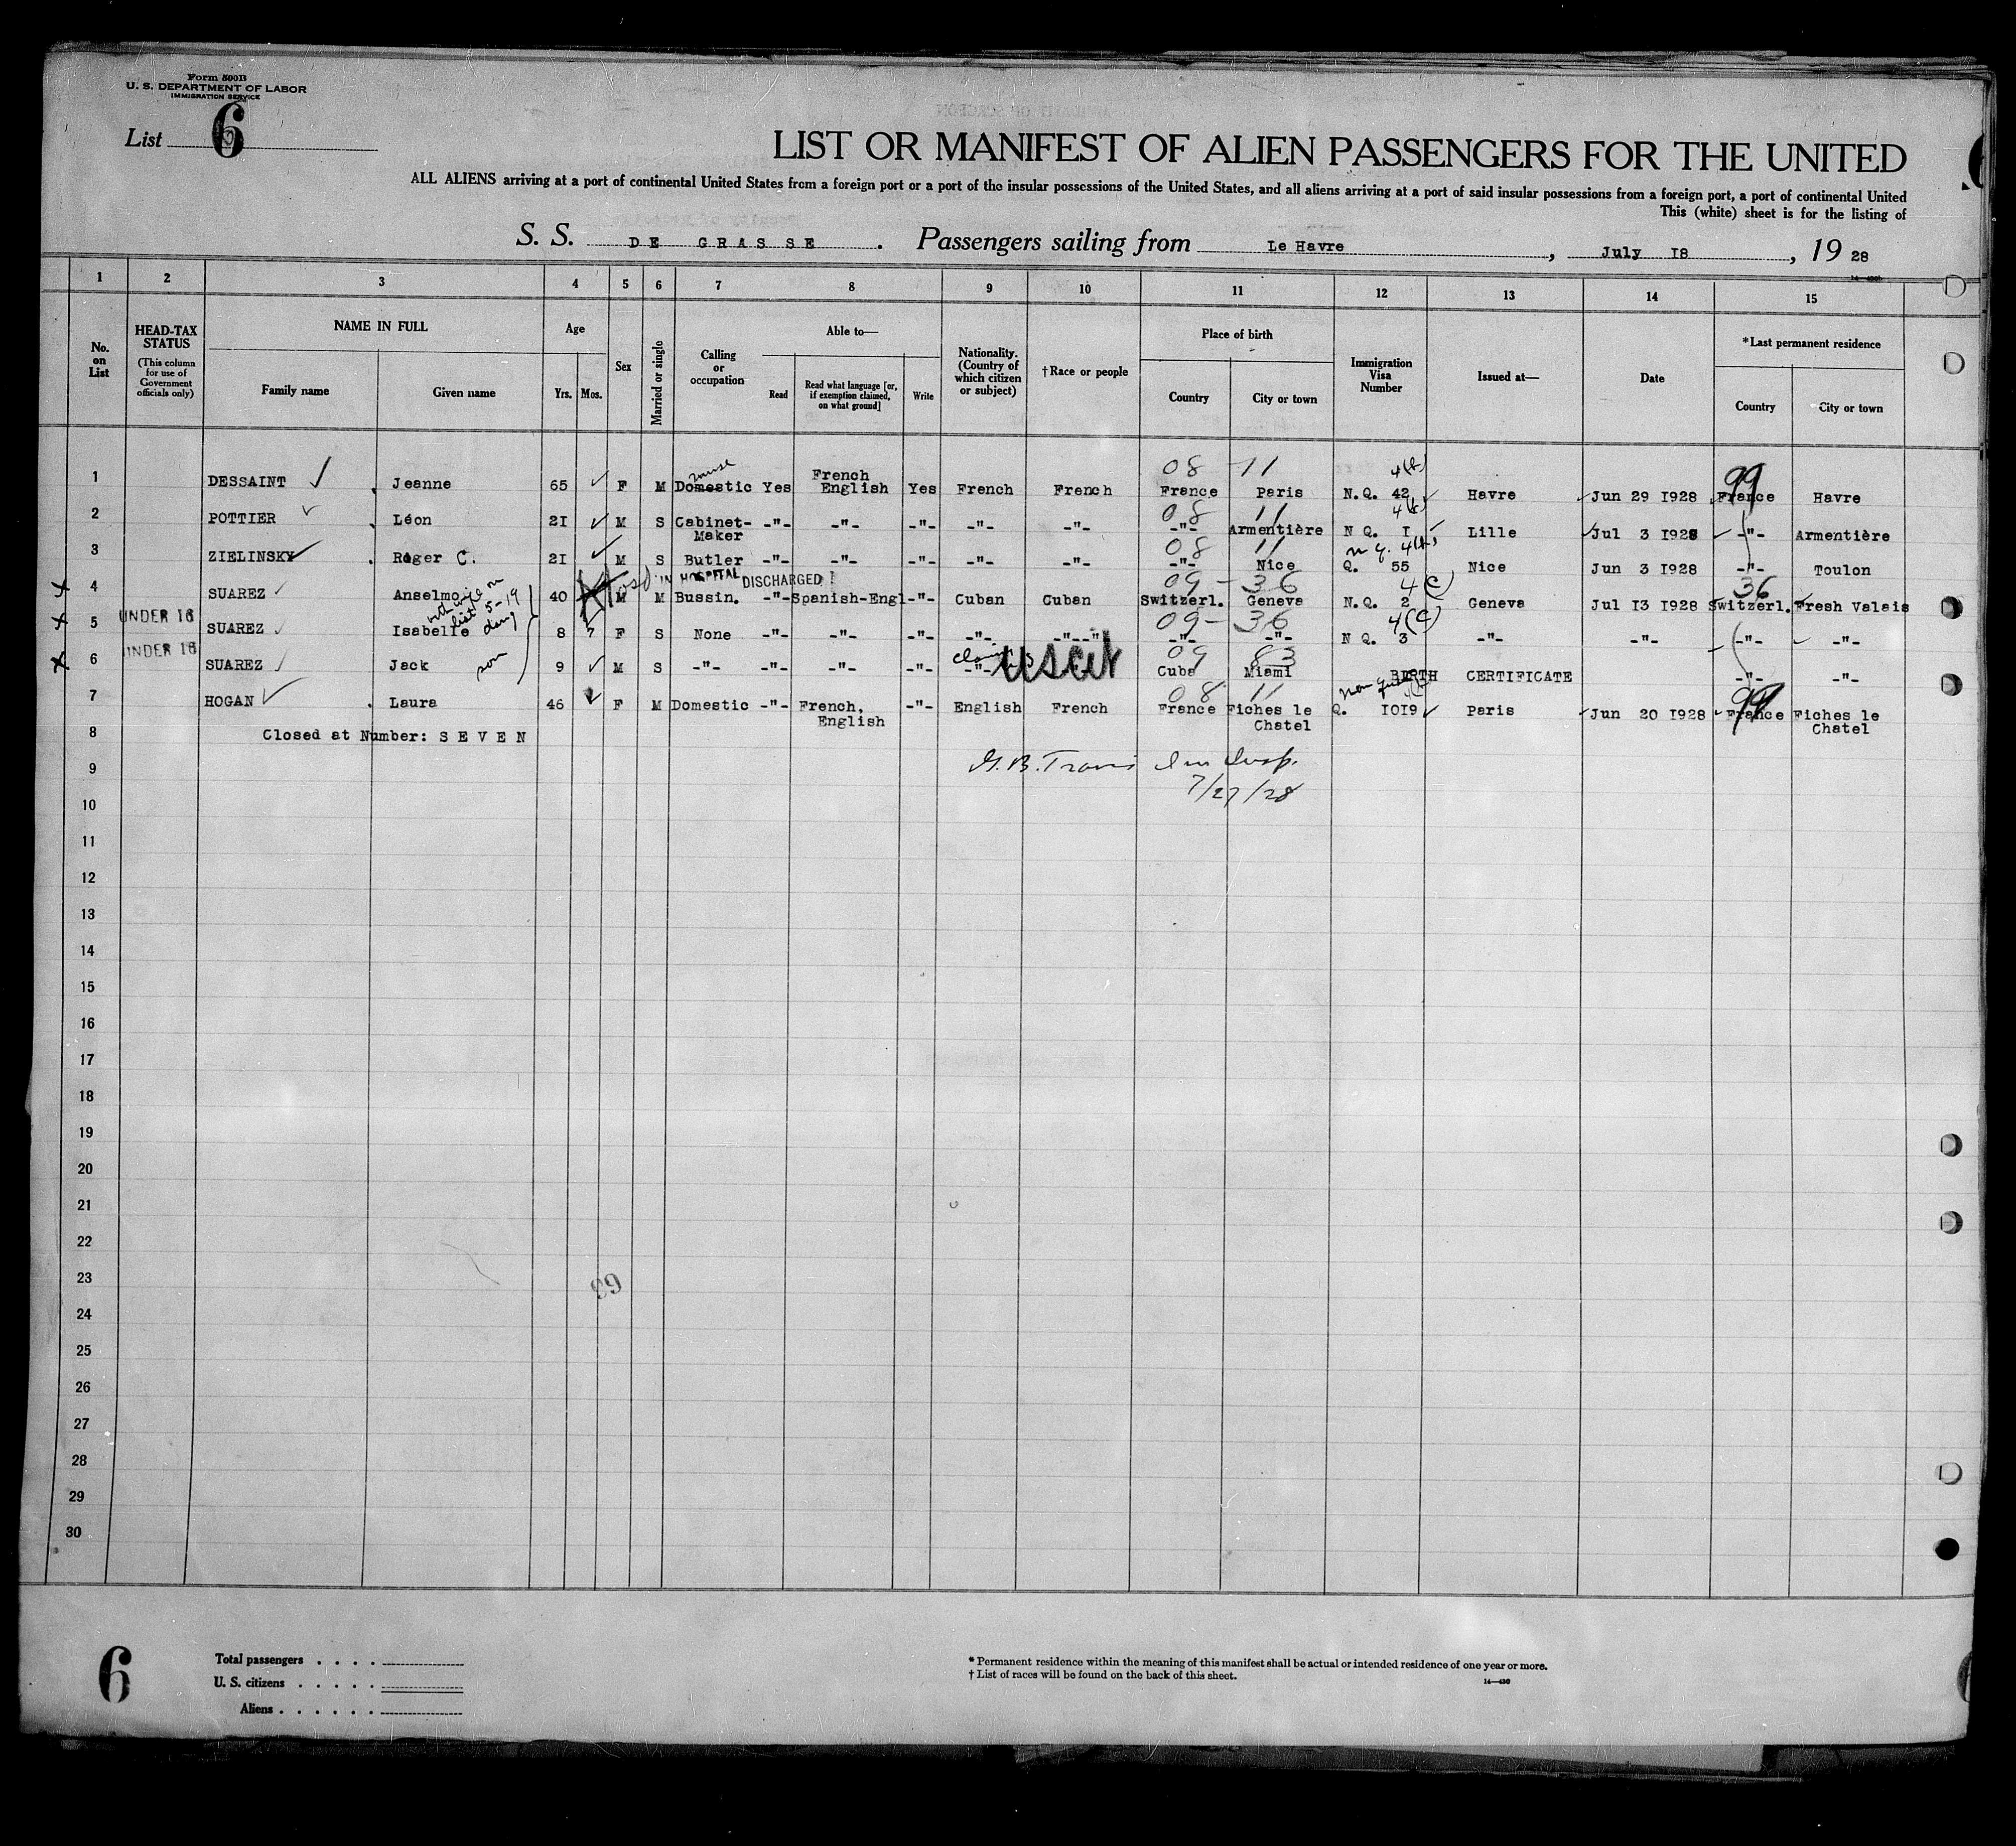 Form 500B
U. S. DEPARTMENT OF LABOR
IMMIGRATION SERVICE
List 6
LIST OR MANIFEST OF ALIEN PASSENGERS FOR THE UNITED
ALL ALIENS arriving at a port of continental United States from a foreign port or a port of the insular possessions of the United States, and all aliens arriving at a port of said insular possessions from a foreign port, a port of continental United
This (white) sheet is for the listing of
S. S. DE GRASSE . Passengers sailing from Le Havre , July 18 , 19 28
1 2 3 4 5 6 7 8 9 10 11 12 13 14 15
No. on List
HEAD-TAX STATUS (This column for use of Government officials only)
NAME IN FULL Family name Given name
Age Yrs. Mos.
Sex
Married or single
Calling or occupation
Able to— Read Read what language [or, if exemption claimed, on what ground] Write
Nationality. (Country of which citizen or subject)
†Race or people
Place of birth Country City or town
Immigration Visa Number
Issued at—
Date
*Last permanent residence Country City or town
08 11 4(b) 99
1 DESSAINT Jeanne 65 F M nurse Domestic Yes French English Yes French French France Paris N.Q. 42 Havre Jun 29 1928 France Havre
08 11
2 POTTIER Léon 21 M S Cabinet-Maker -"- -"- -"- -"- -"- -"- Armentière N Q. 1 Lille Jul 3 1928 -"- Armentière
08 11 n q.
3 ZIELINSKY Roger C. 21 M S Butler -"- -"- -"- -"- -"- -"- Nice Q. 55 Nice Jun 3 1928 -"- Toulon
IN HOSPITAL DISCHARGED 09 - 36 4(c) 36
4 SUAREZ Anselmo 40 M M Bussin. -"- Spanish-Engl -"- Cuban Cuban Switzerl. Geneva N.Q. 2 Geneva Jul 13 1928 Switzerl. Fresh Valais
with wife on list 5-19
UNDER 16 09 - 36 4(c)
5 SUAREZ Isabelle 8 7 F S None -"- -"- -"- -"- -"--"- -"- -"- N Q. 3 -"- -"- -"- -"-
UNDER 16 claims USCit 09 83
6 SUAREZ Jack son 9 M S -"- -"- -"- -"- -"- Cuba Miami BIRTH CERTIFICATE -"- -"-
08 11 non quota 99
7 HOGAN Laura 46 F M Domestic -"- French, English -"- English French France Fiches le Chatel Q. 1019 Paris Jun 20 1928 France Fiches le Chatel
8 Closed at Number: SEVEN
9 G. B. Travis Imm Insp.
7/27/28
10
11
12
13
14
15
16
17
18
19
20
21
22
23
69
24
25
26
27
28
29
30
6
Total passengers
U. S. citizens
Aliens
* Permanent residence within the meaning of this manifest shall be actual or intended residence of one year or more.
† List of races will be found on the back of this sheet.
14—430